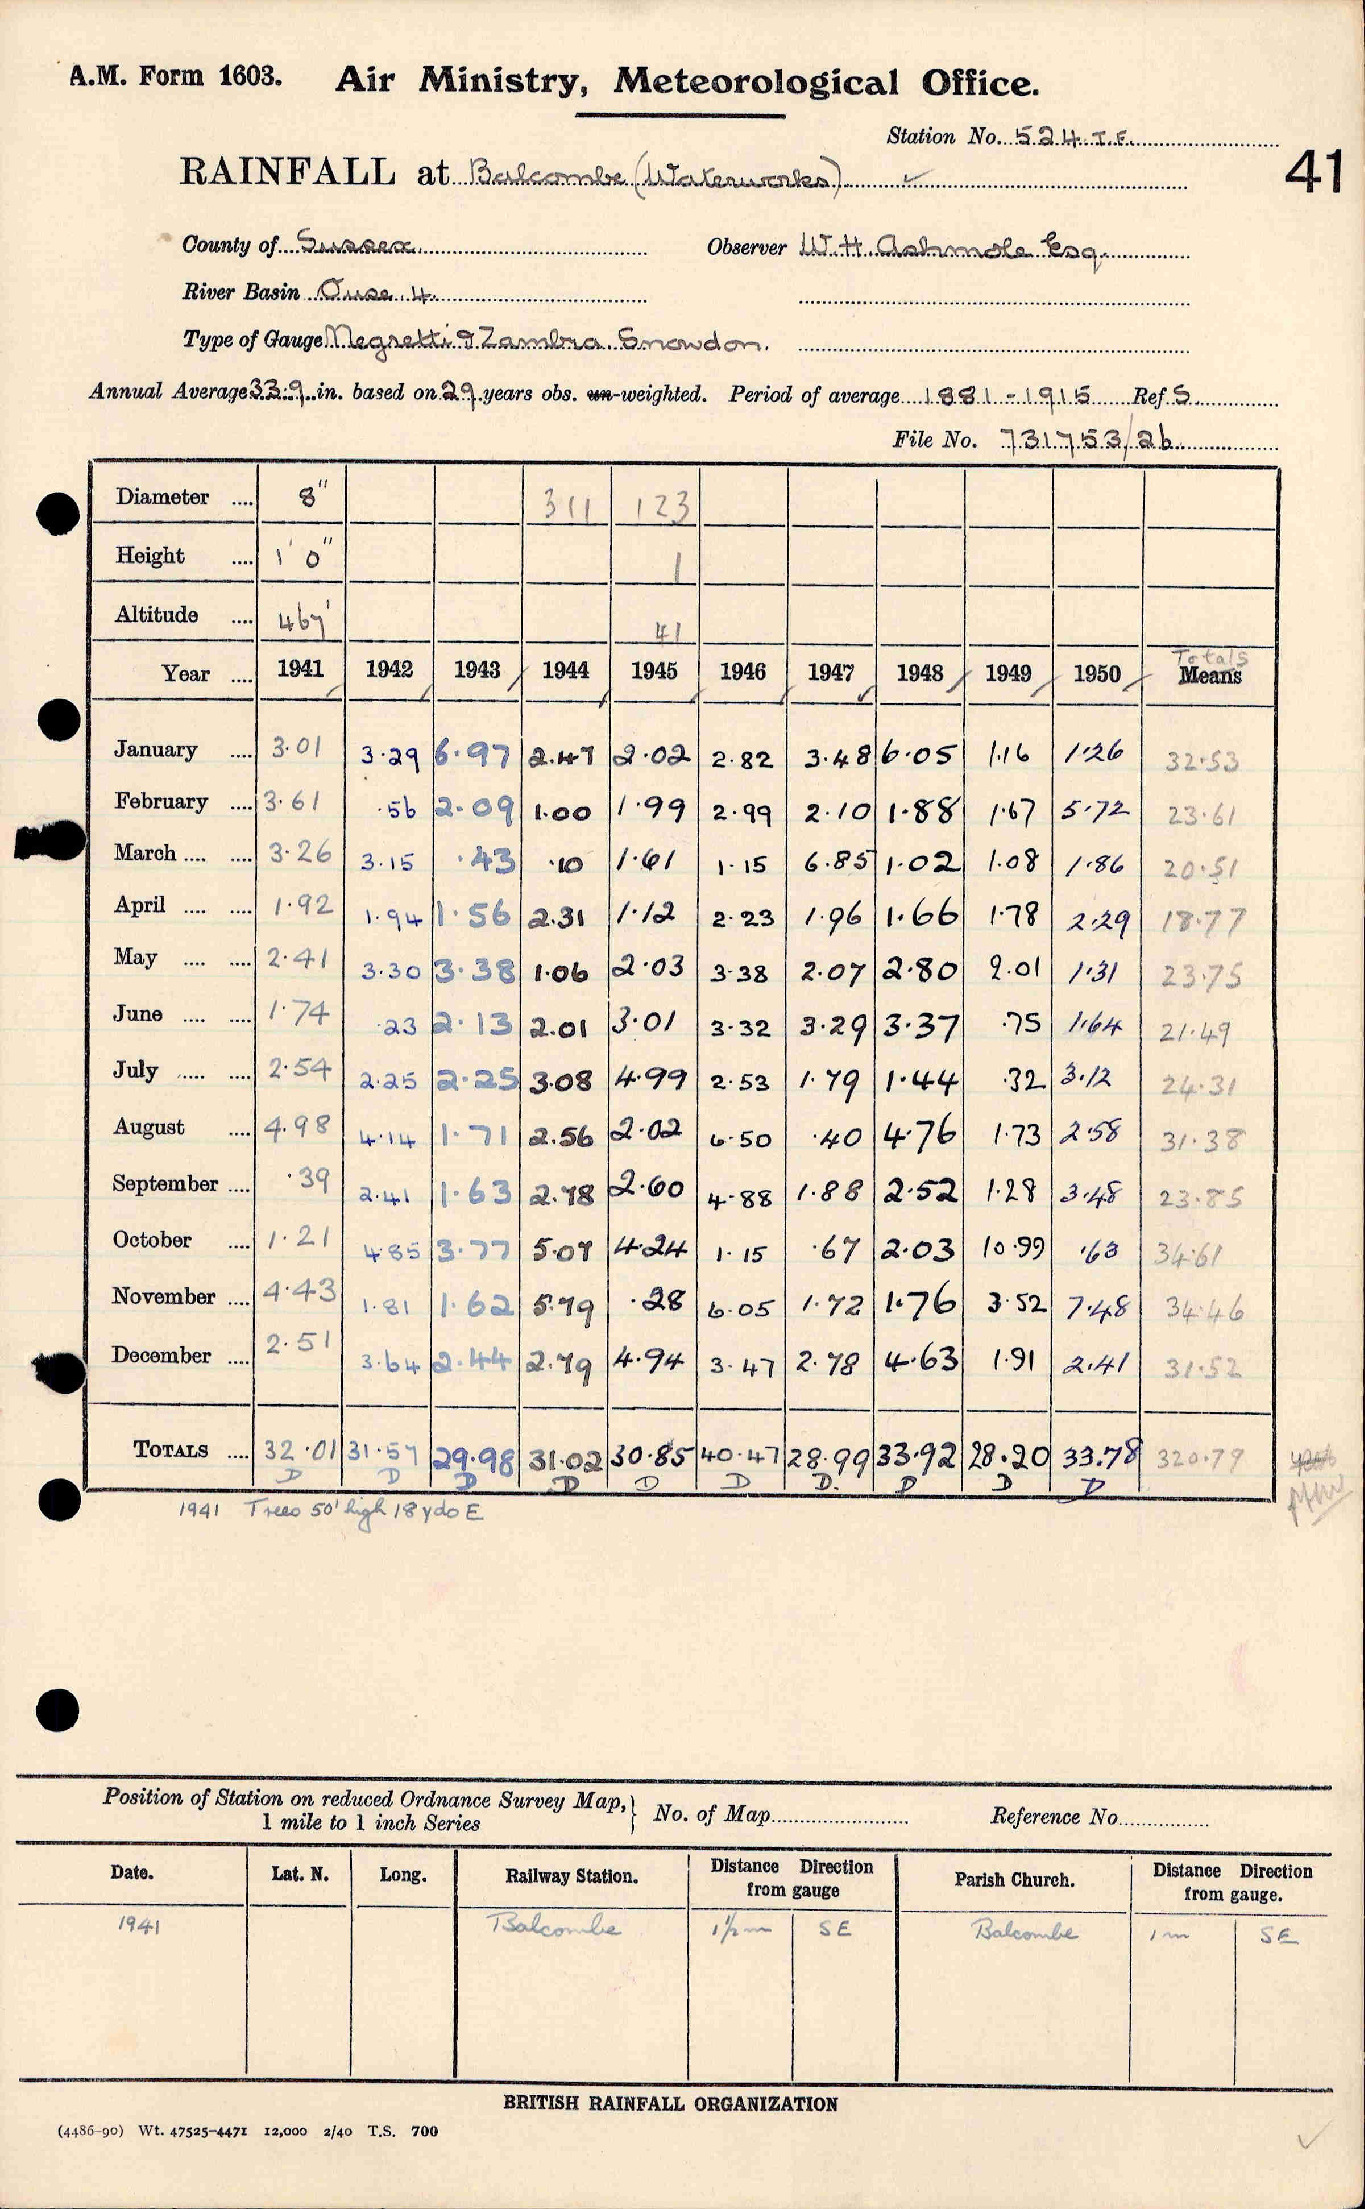 A.M. Form 1603. Air Ministry, Meteorological Office.
Station No. 524 T.F.
41
RAINFALL at Balcombe (Waterworks) ✓
County of Sussex Observer W.H. Ashmole Esq.
River Basin Ouse 4.
Type of Gauge Negretti & Zambra. Snowdon.
Annual Average 33.9 in. based on 29 years obs. un-weighted. Period of average 1881-1915 Ref S.
File No. 731753/26
Diameter .... 8" 311 123
Height .... 1' 0" 1
Altitude .... 467' 41
Totals
Year .... 1941 1942 1943 1944 1945 1946 1947 1948 1949 1950 Means
January .... 3.01 3.29 6.97 2.47 2.02 2.82 3.48 6.05 1.16 1.26 32.53
February .... 3.61 .56 2.09 1.00 1.99 2.99 2.10 1.88 1.67 5.72 23.61
March .... .... 3.26 3.15 .43 .10 1.61 1.15 6.85 1.02 1.08 1.86 20.51
April .... .... 1.92 1.94 1.56 2.31 1.12 2.23 1.96 1.66 1.78 2.29 18.77
May .... .... 2.41 3.30 3.38 1.06 2.03 3.38 2.07 2.80 2.01 1.31 23.75
June .... .... 1.74 .23 2.13 2.01 3.01 3.32 3.29 3.37 .75 1.64 21.49
July .... .... 2.54 2.25 2.25 3.08 4.99 2.53 1.79 1.44 .32 3.12 24.31
August .... 4.98 4.14 1.71 2.56 2.02 6.50 .40 4.76 1.73 2.58 31.38
September .... .39 2.41 1.63 2.78 2.60 4.88 1.88 2.52 1.28 3.48 23.85
October .... 1.21 4.85 3.77 5.07 4.24 1.15 .67 2.03 10.99 .63 34.61
November .... 4.43 1.81 1.62 5.79 .28 6.05 1.72 1.76 3.52 7.48 34.46
December .... 2.51 3.64 2.44 2.79 4.94 3.47 2.78 4.63 1.91 2.41 31.52
TOTALS .... 32.01 31.57 29.98 31.02 30.85 40.47 28.99 33.92 28.20 33.78 320.79
D D D D D D D. D D D
1941 Trees 50' high 18 yds E
Position of Station on reduced Ordnance Survey Map,} No. of Map Reference No.
1 mile to 1 inch Series
Date. Lat. N. Long. Railway Station. Distance Direction from gauge Parish Church. Distance Direction from gauge.
1941 Balcombe 1½ m SE Balcombe 1 m SE
BRITISH RAINFALL ORGANIZATION
(4486-90) Wt. 47525-4471 12,000 2/40 T.S. 700
✓